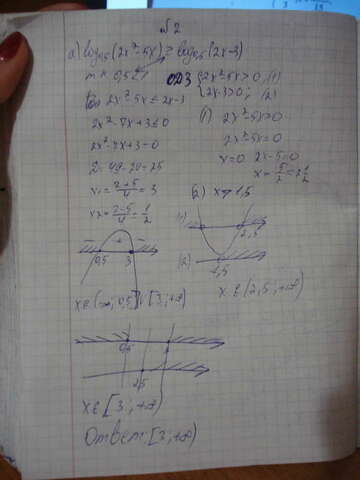 №2
а) log₀,₅(2x²-5x) ≥ log₀,₅(2x-3)
т.к. 0,5<1 ОДЗ {2x²-5x>0, (1)
{2x-3>0; (2)
2x²-5x≤2x-3
2x²-7x+3≤0
2x²-7x+3=0
D=49-24=25
x₁=(7+5)/4=3
x₂=(7-5)/4=1/2
- + -
0,5 3
x∈(-∞;0,5]∪[3;+∞)
(1) 2x²-5x>0
2x²-5x=0
x=0 2x-5=0
x=5/2=2 1/2
(2) x>1,5
(1) 2,5
(2) 1,5
x∈(2,5;+∞)
0,5 3
2,5
x∈[3;+∞)
Ответ: [3;+∞)